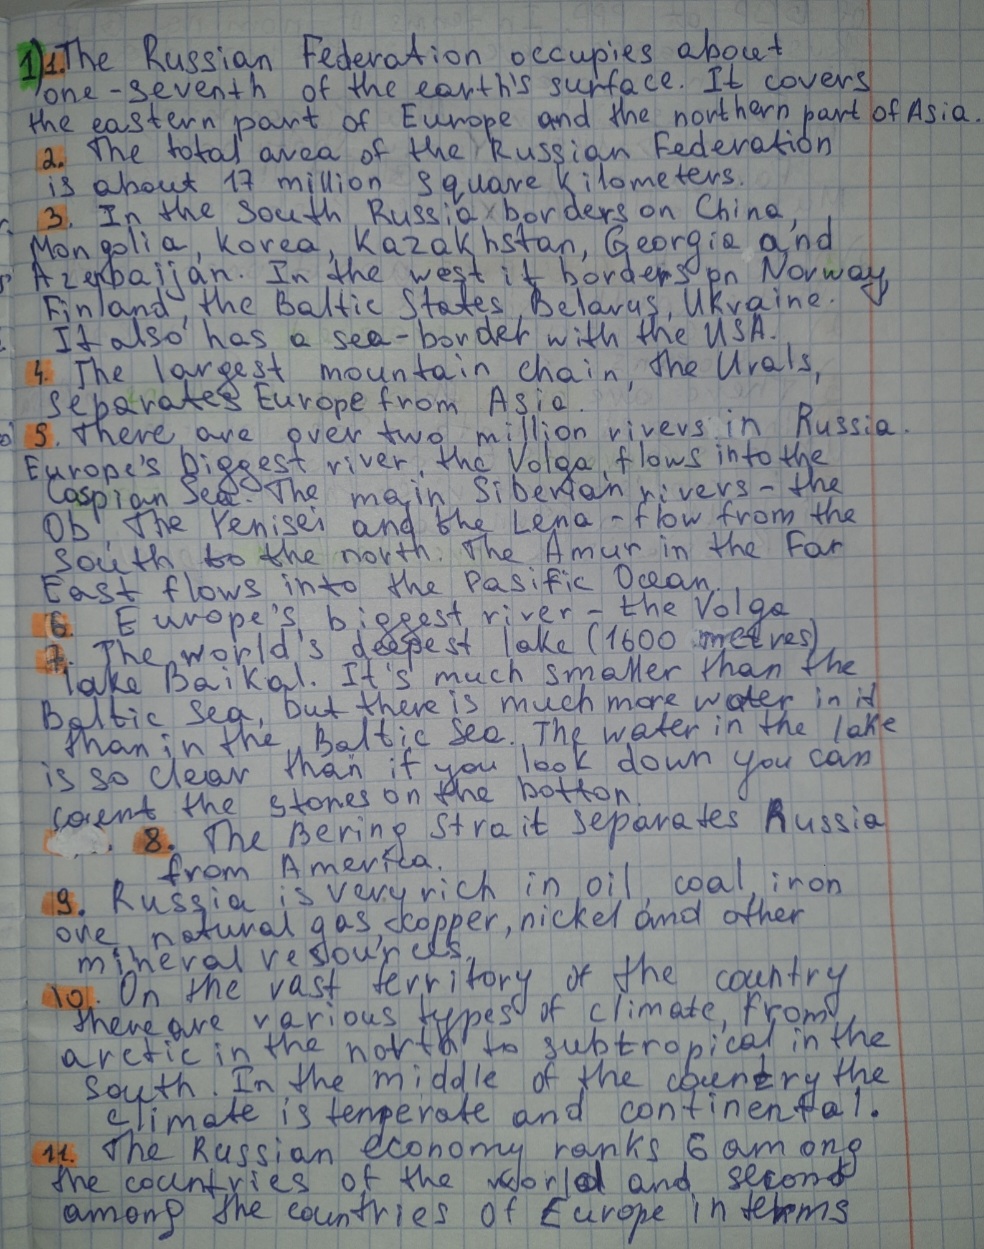 1) 1. The Russian Federation occupies about
one-seventh of the earth's surface. It covers
the eastern part of Europe and the northern part of Asia.
2. The total area of the Russian Federation
is about 17 million square kilometers.
3. In the South Russia borders on China,
Mongolia, Korea, Kazakhstan, Georgia and
Azerbaijan. In the west it borders on Norway
Finland, the Baltic States, Belarus, Ukraine.
It also has a sea-border with the USA.
4. The largest mountain chain, the Urals,
separates Europe from Asia.
5. There are over two million rivers in Russia.
Europe's biggest river, the Volga, flows into the
Caspian Sea. The main Siberian rivers - the
Ob, The Yenisei and the Lena - flow from the
south to the north. The Amur in the Far
East flows into the Pasific Ocean.
6. Europe's biggest river - the Volga
7. The world's deepest lake (1600 metres)
lake Baikal. It's much smaller than the
Baltic Sea, but there is much more water in it
than in the Baltic Sea. The water in the lake
is so clear than if you look down you can
count the stones on the botton.
8. The Bering Strait separates Russia
from America.
9. Russia is very rich in oil, coal, iron
ore, natural gas, copper, nickel and other
mineral resources.
10. On the vast territory of the country
there are various types of climate, from
arctic in the north to subtropical in the
south. In the middle of the country the
climate is temperate and continental.
11. The Russian economy ranks 6 among
the countries of the world and second
among the countries of Europe in terms